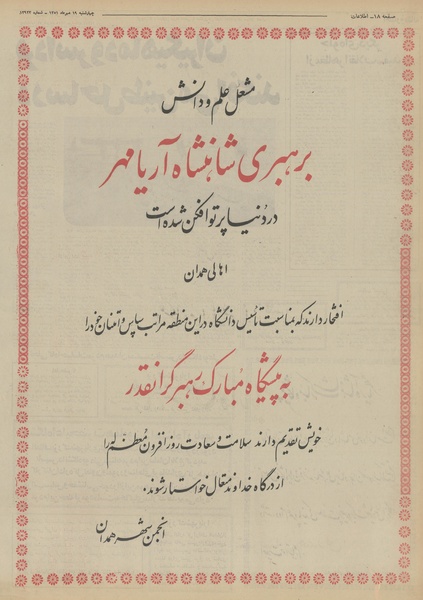 صفحه ۱۸ـ اطلاعات
چهارشنبه ۱۸ مرداد ۱۳۵۱ ـ شماره
مشعل علم و دانش
برهبری شاهنشاه آریامهر
در دنیا پرتو افکن شده است
اهالی همدان
افتخار دارند که بمناسبت تأسیس دانشگاه در این منطقه مراتب سپاس و امتنان خود را
به پیشگاه مبارک رهبر گرانقدر
خویش تقدیم دارند سلامت و سعادت روز افزون معظم له را
از درگاه خداوند متعال خواستار شوند.
انجمن شهر همدان